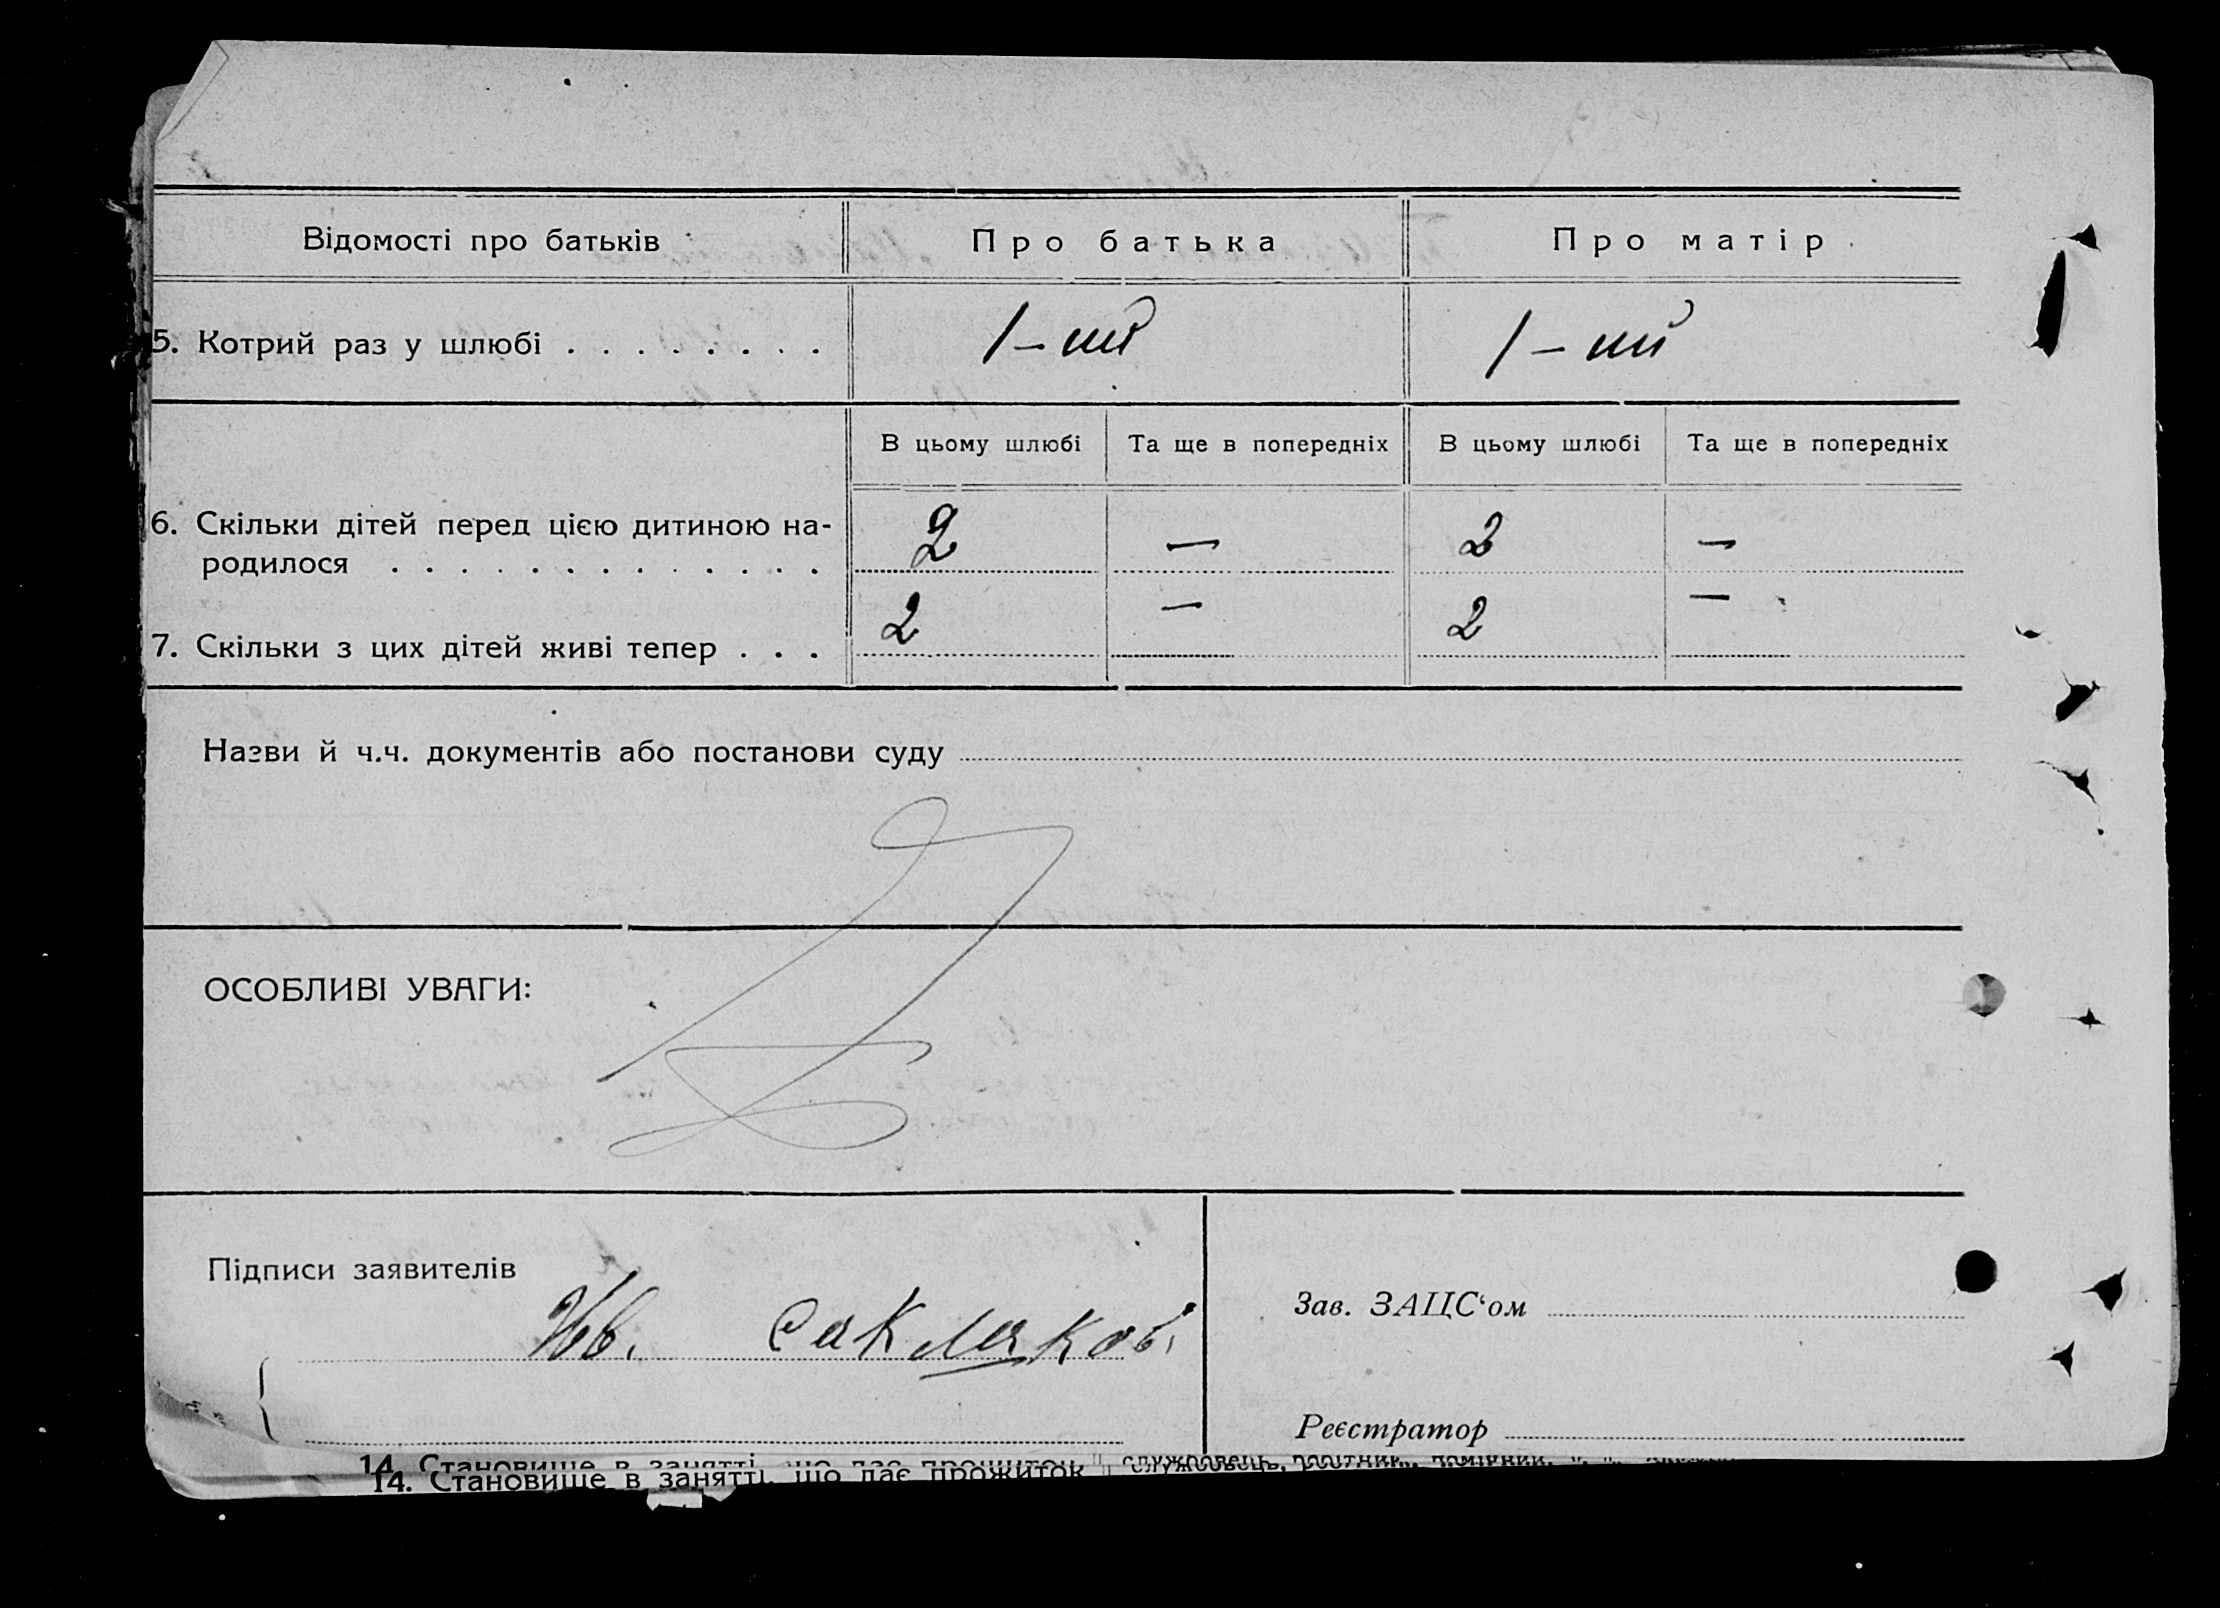 Відомості про батьків Про батька Про матір
5. Котрий раз у шлюбі . . . . . . . . 1-ий 1-ий
В цьому шлюбі Та ще в попередніх В цьому шлюбі Та ще в попередніх
6. Скільки дітей перед цією дитиною на-
родилося . . . . . . . . . . . . . 2 — 2 —
7. Скільки з цих дітей живі тепер . . . 2 — 2 —
Назви й ч.ч. документів або постанови суду
ОСОБЛИВІ УВАГИ:
Підписи заявителів
Ив. Саклаков.
Зав. ЗАЦС‘ом
Реєстратор
14. Становище в занятті, що дає прожиток
14. Становище в занятті, що дає прожиток